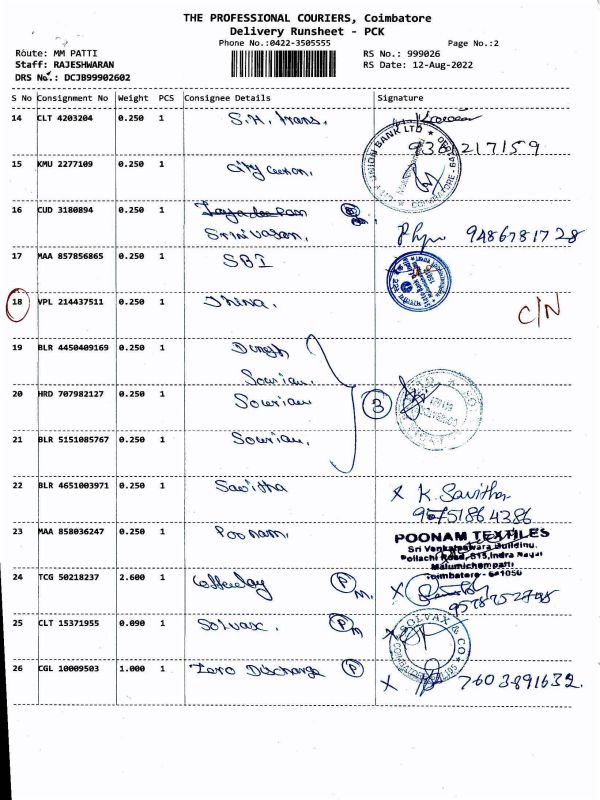 THE PROFESSIONAL COURIERS, Coimbatore
Delivery Runsheet - PCK
Phone No.:0422-3505555 Page No.:2
Route: MM PATTI RS No.: 999026
Staff: RAJESHWARAN RS Date: 12-Aug-2022
DRS No.: DCJB99902602
S No Consignment No Weight PCS Consignee Details Signature
14 CLT 4203204 0.250 1 S.H. trans.
217159
15 KMU 2277109 0.250 1 city
UNION BANK LTD
16 CUD 3180894 0.250 1
Srinivasan. 9486781728
17 MAA 857856865 0.250 1 SBI
18 VPL 214437511 0.250 1 C/N
19 BLR 4450409169 0.250 1 Dinesh
Sourian.
20 HRD 707982127 0.250 1 Sourian 3
21 BLR 5151085767 0.250 1 Sourian.
22 BLR 4651003971 0.250 1 Savitha X K. Savitha
9751864286
23 MAA 858036247 0.250 1 Poonam.
POONAM TEXTILES
Sri Venkateswara Building.
Pollachi Road, Indra Nagar
Malumichampatti
Coimbatore -
24 TCG 50218237 2.600 1 Coffeeday P M. X
25 CLT 15371955 0.090 1 Solvax. P M X
SOLVAX & CO
26 CGL 10009503 1.000 1 Zero Discharge P X 7603891632.